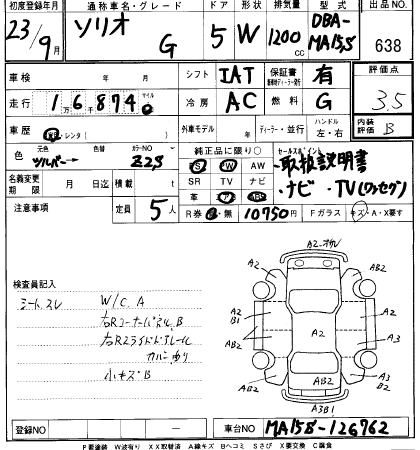 初度登録年月 通称車名・グレード ドア 形状 排気量 型式 出品NO.
23/9月 ソリオ G 5 W 1200cc DBA-MA15S 638
車検 年 月 シフト IAT 保証書 有 評価点
走行 1万6874 マイル 冷房 AC 燃料 G 3.5
車歴 レンタ 外車モデル 年 ディーラー・並行 ハンドル 左・右 内装評価 B
色 元色 シルバー 色替 カラーNO Z2S 純正品に限り○ セールスポイント
名義変更期限 月 日迄 積載 t PS PW AW
SR TV ナビ
・取扱説明書
・ナビ・TV(ワンセグ)
注意事項 定員 5人 革
R券 有・無 10750円 Fガラス キズ・A・X要す
検査員記入
シートスレ W/C A
右Rコーナーパネル B
小キズB
A2
AB2
A2
B1
A2
A3
B2
A3B1
登録NO 車台NO MA15S-126762
P要塗装 W波有り XX取替済 A線キズ Bヘコミ Sさび X要交換 C腐食